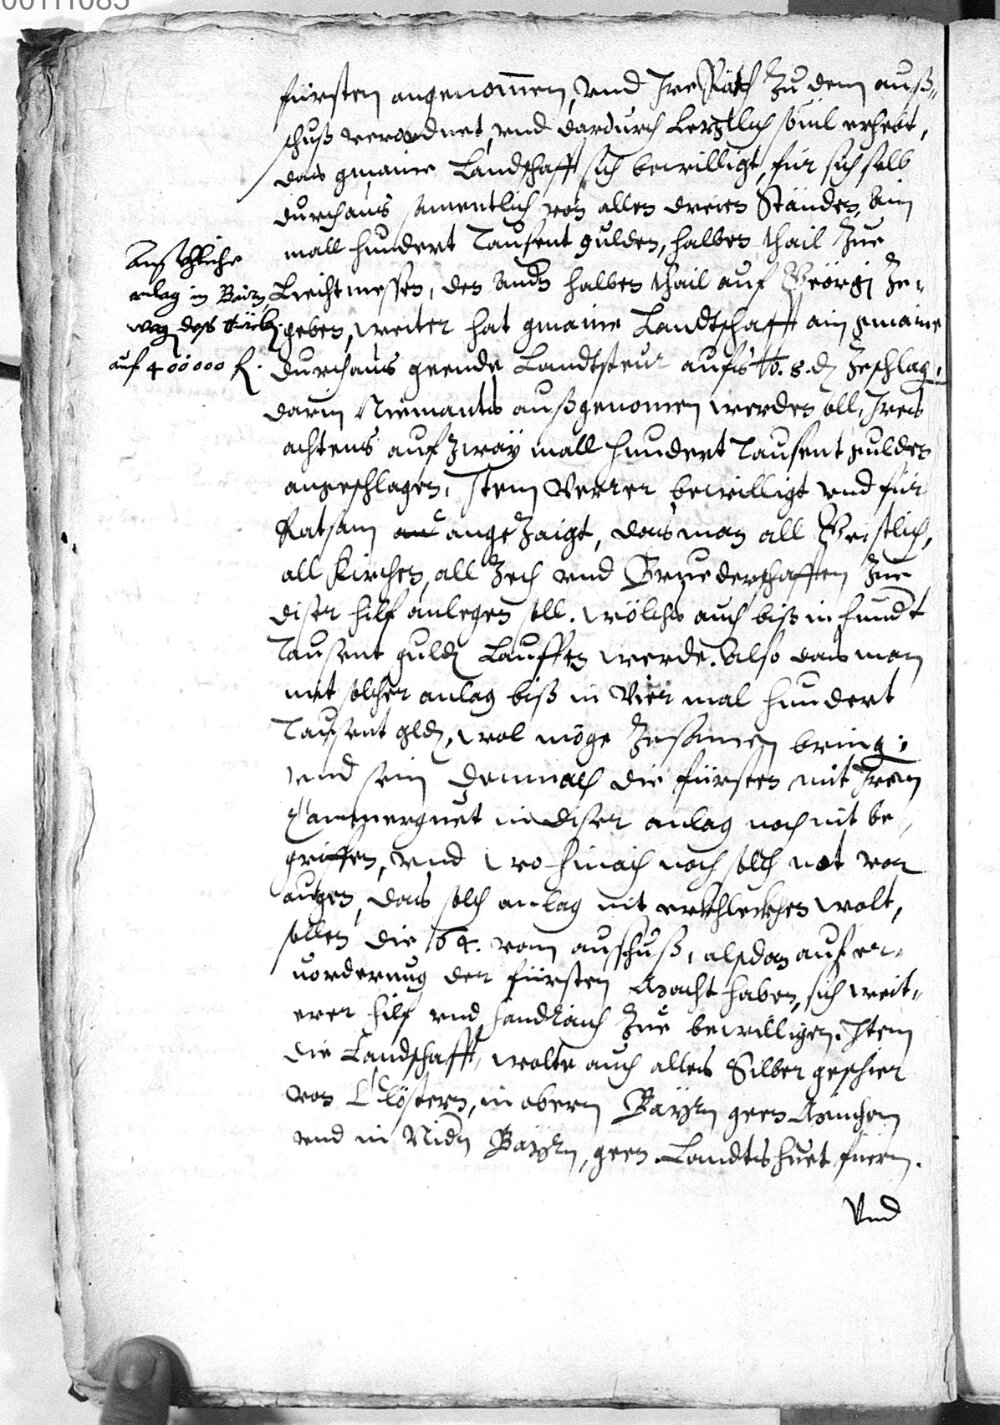 fürsten angenommen, vnd Jre Räth Zu dem auß-
schuß verordnet, vnd dardurch Letztlich souil erhebt,
das gmaine Landschafft sich bewilligt, für sich selb
durchaus samentlich von allen dreien Ständen, Ain
mall hundert Tausent gulden, halben thail Zue
Liechtmessen, den andn halben thail auf Geörgi Ze-
geben, weiter hat gmaine Landtschafft ain gmaine
durchaus geende Landtsteur aufs lb. 8. d Zeschlag.
darin Niemants außgenomen werden soll, Jres
achtens auf Zway mall hundert Tausent gulden
angeschlagen. Item Verrer bewilligt vnd für
Ratsam angeZaigt, das man all Geistlich,
all Kirchen, all Zech vnd Bruederschafften Zue
diser hilf anlegen soll. wölchs auch biß in hundt
Tausent guld Lauffen werde. Also das man
mit solcher anlag biß in Vier mal hundert
Tausent gld, wol möge Zusamen bring.
vnd sein demnach die fürsten mit Jrem
Camerguet in diser anlag noch nit be-
griffen, vnd wo hinach noch solch not vor
augen, das solch anlag nit erkhleckhen wolt,
sollen die 64. vom auschuß, alsdan auf er-
uorderung der fürsten Macht haben, sich weit-
erer hilf vnd handraich Zue bewilligen. Item
die Landschafft, wolte auch alles Silber geschier
von Clöstern, in obern Bayrn geen München
vnd in Nidn Bayrn, geen Landtshuet füern.
Vnd
Ansechliche
anlag in Bairn
weg. des türkh
auf 400000 fl.